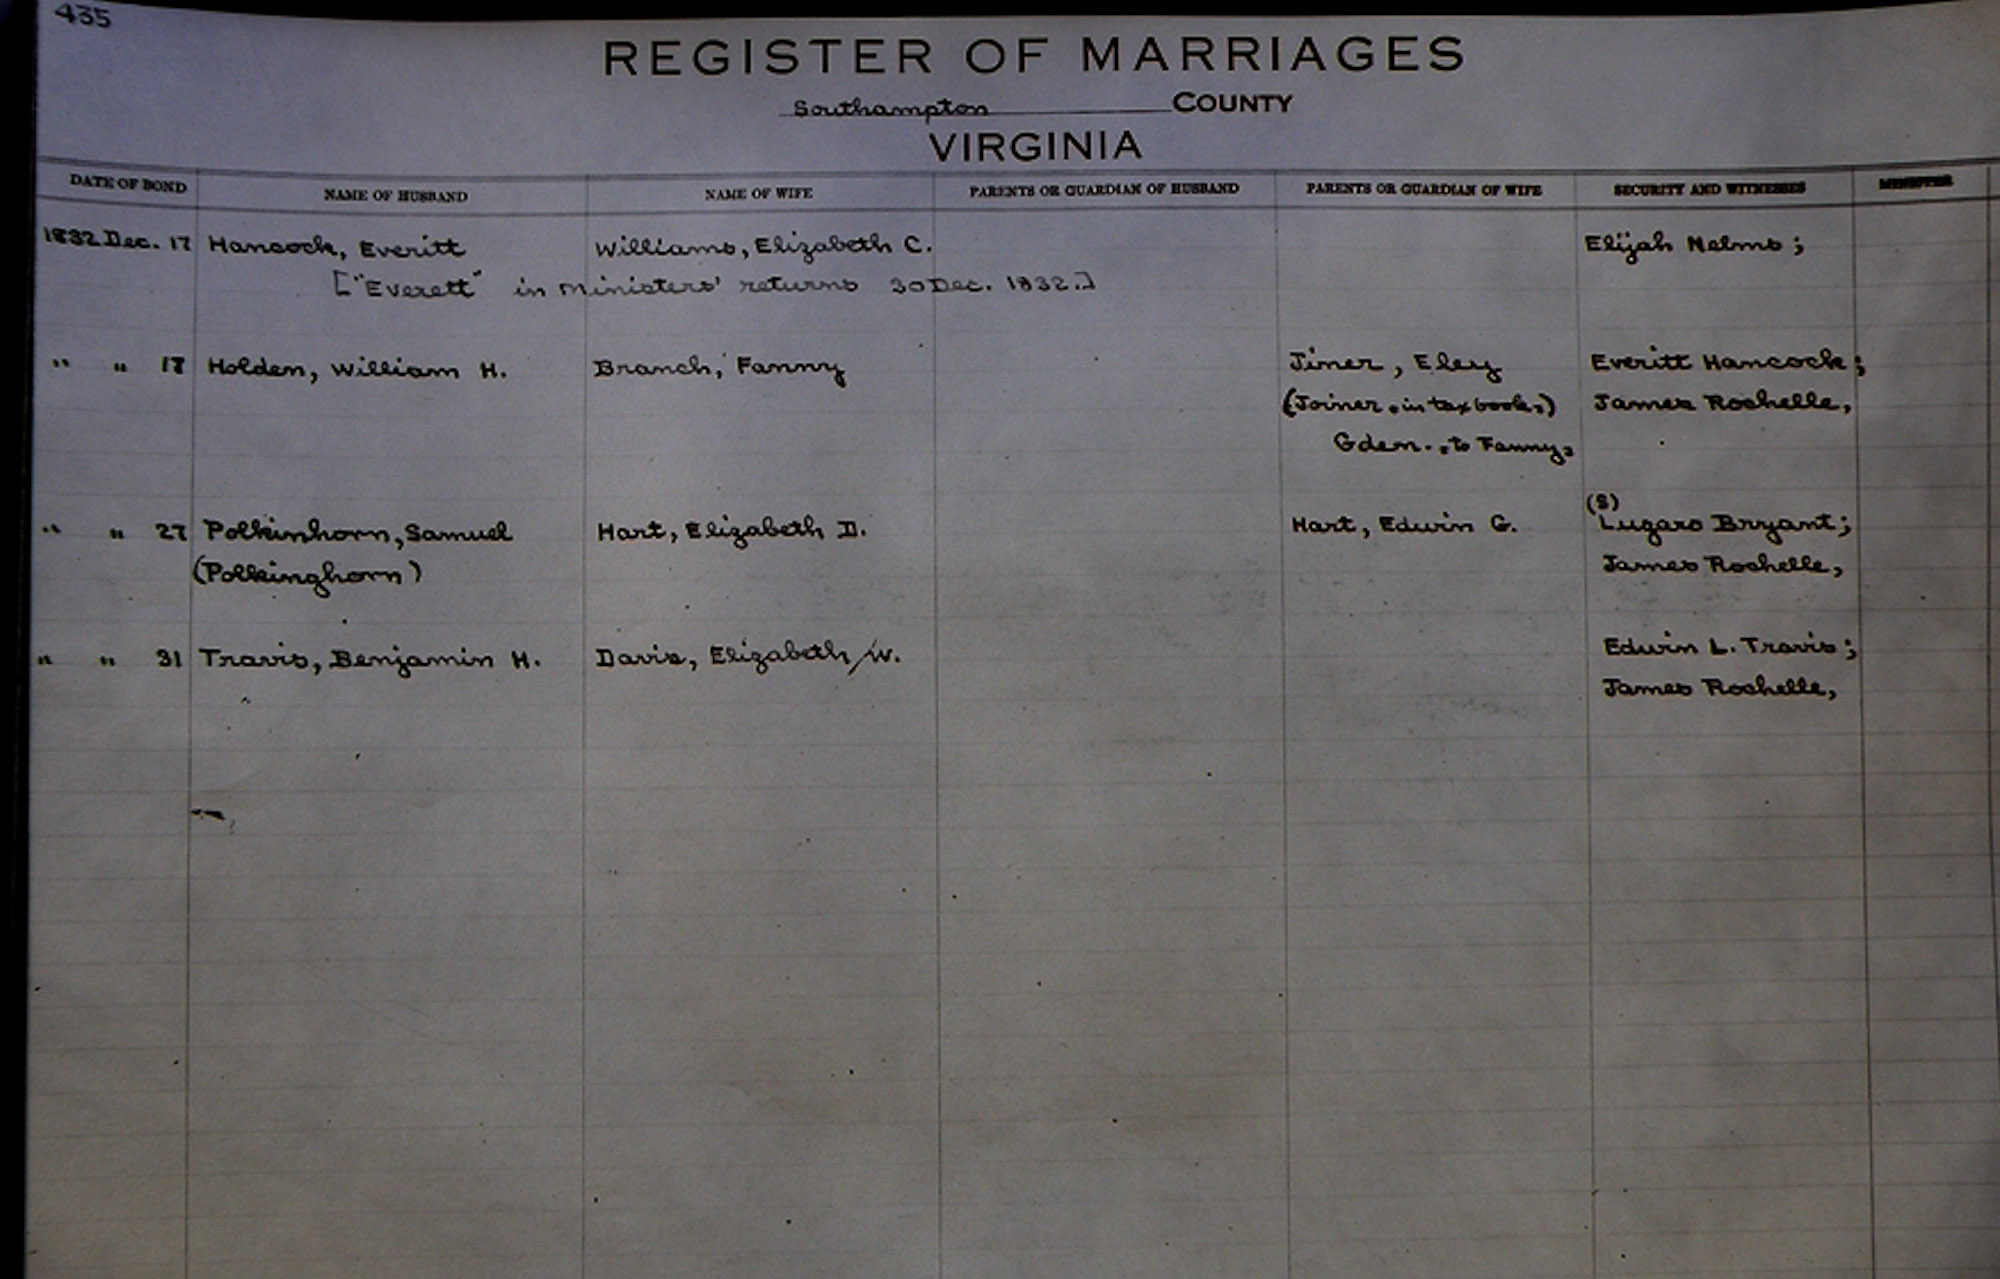 435
REGISTER OF MARRIAGES
Southampton COUNTY
VIRGINIA
DATE OF BOND NAME OF HUSBAND NAME OF WIFE PARENTS OR GUARDIAN OF HUSBAND PARENTS OR GUARDIAN OF WIFE SECURITY AND WITNESSES MINISTER
1832 Dec. 17 Hancock, Everitt Williams, Elizabeth C. Elijah Nelms;
["Everett" in Ministers' returns 30 Dec. 1832.]
" " 17 Holden, William H. Branch, Fanny Jiner, Eley Everitt Hancock;
(Joiner, in tax books,) James Rochelle,
Gdem. , to Fanny,
(S)
" " 27 Polkinhorn, Samuel Hart, Elizabeth D. Hart, Edwin G. Lugaro Bryant;
(Polkinghorn) James Rochelle,
" " 31 Travis, Benjamin H. Davis, Elizabeth W. Edwin L. Travis;
James Rochelle,